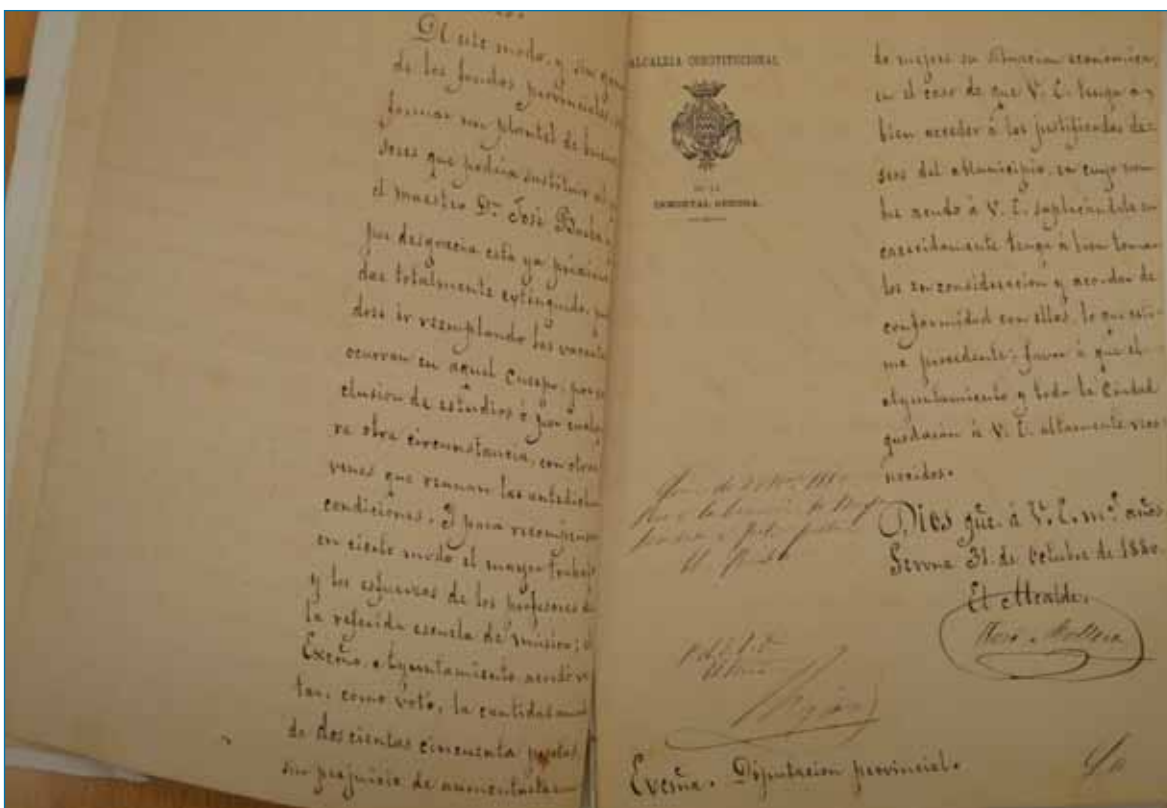 De este modo, y sin
de los fondos provinciales,
formar un plantel de buenos
sores que podria sustituir al
el maestro Dn. José
por desgracia está ya próximo
dar totalmente extinguido,
dose ir reemplando las vacantes
ocurran en aquel Cuerpo, por
clusion de estudios ó por cualq
ra otra circunstancia, con otros
venes que reunan las antedichas
condiciones. Y para recompensar
en cierto modo el mayor trabajo
y los esfuerzos de los profesores de
la referida escuela de música; el
Excmo. Ayuntamiento acordó vo
tar, como votó, la cantidad
de doscientas cincuenta pesetas,
sin perjuicio de aumentarlas
ALCALDIA CONSTITUCIONAL
DE LA
INMORTAL GERONA.
do mejore su situacion económica,
en el caso de que V. E. tenga á
bien acceder á los justificados de=
seos del Municipio, en cuyo nom
bre acudo á V. E. suplicándole en
carecidamente tenga á bien tomar
los en consideración y acordar de
conformidad con ellos, lo que esti=
me procedente; favor á que el
Ayuntamiento y toda la Ciudad
quedarán á V. E. altamente reco=
nocidos.
Dios gũe. á V. E. ms. años
Gerona 31 de Octubre de 1880.
El Alcalde,
Excma. Diputacion provincial.